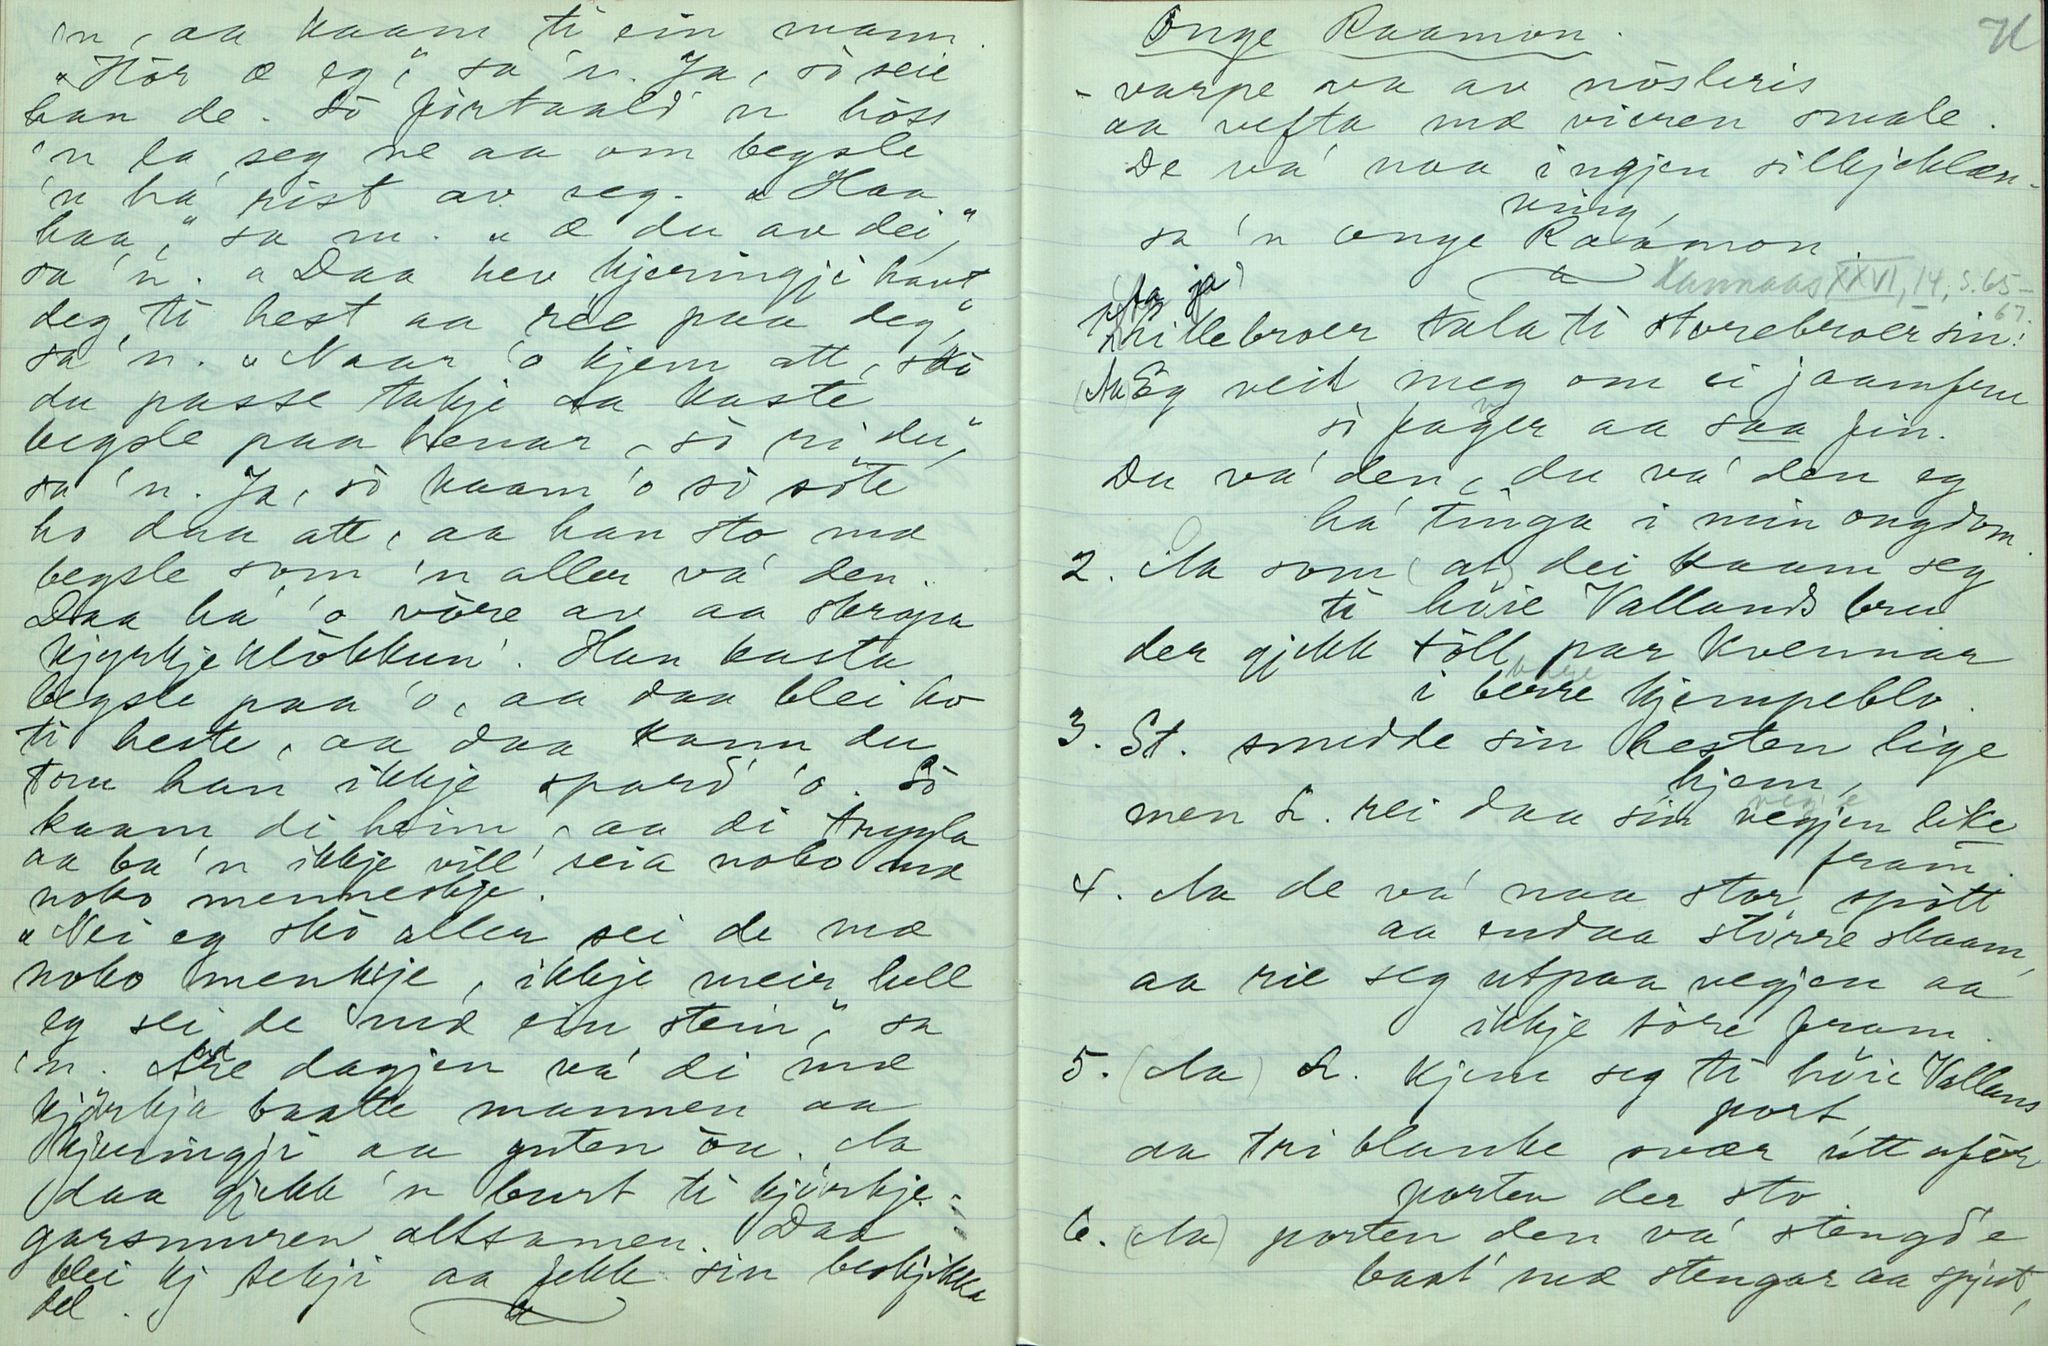 'n, aa kaam ti ein mann.
"Hör æ eg," sa 'n. Ja, so seie
han de. So førtaald' 'n höss
'n la seg ne aa om begsle
'n ha' rist av seg. "Haa
haa," sa 'n. "Æ du av dei",
sa 'n. "Daa hev kjeringji havt
deg ti hest aa rée paa deg",
sa 'n. "Naar 'o kjem att, sko
du passe takje aa kaste
begsle paa henar, so ri du",
sa 'n. Ja, so kaam 'o so söte
ho daa att, aa han sto mæ
begsle som 'n aller va' den.
Daa ha' 'o vöre av aa skrapa
kjyrkjeklökkun'. Han kasta
begsle paa 'o, aa daa blei ho
ti heste, aa daa kann du
tru han ikkje spard' 'o. So
kaam di heim, aa di trygla
aa ba 'n ikkje vill' seia noko mæ
noko menneskje.
"Nei eg sko aller sei de mæ
noko menkje, ikkje meir hell
eg sei de mæ ein stein", sa
'n. Are dagjen va' di mæ
kjörkja baate mannen aa
kjeringji aa guten öu. Aa
daa gjekk 'n burt ti kjörkje-
garsmuren altsamen. Daa
blei kj tekji aa fekk sin beskjikka
del.
Onge Raamon.
- varpe va av nösleris
aa vefta mæ vieren smale.
De va' naa ingjen silkjeklæn-
ning,
sa 'n onge Raamon.
Kannaas XXVI, 14, s. 65-
67.
(Aa ja)
Litlebroer tala ti storebroer sin:
(Aa) Eg veit meg om ei jaamfru
so fager aa saa fin.
Du va' den, du va' den eg
ha' tinga i min ongdom.
2. Aa som (at) dei kaam seg
ti höie Vallands bru
der gjekk töll par kvennar
i berre kjempeblo.
3. St. snudde sin hesten lige
hjem,
men L. rei daa sin vegjen like
fram.
4. Aa de va' naa stor spött
aa endaa större skaam,
aa rie seg utpaa vegjen aa
ikkje töre fram.
5. (Aa) L. kjem seg ti höie Vallans
port,
aa tri blanke svær utt aför
porten der sto.
6. (Aa) porten den va' stengd'e
baat' mæ stengar aa spjut,